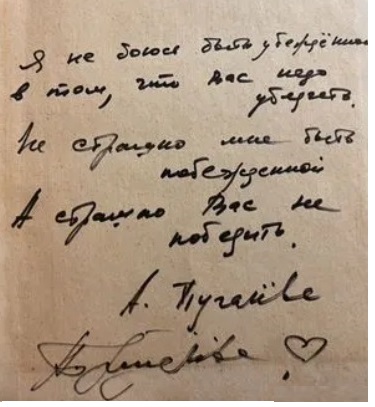 Я не боюсь быть убеждённой
в том, что Вас надо
убедить.
Не страшно мне быть
побежденной
А страшно Вас не
победить.
А. Пугачёва